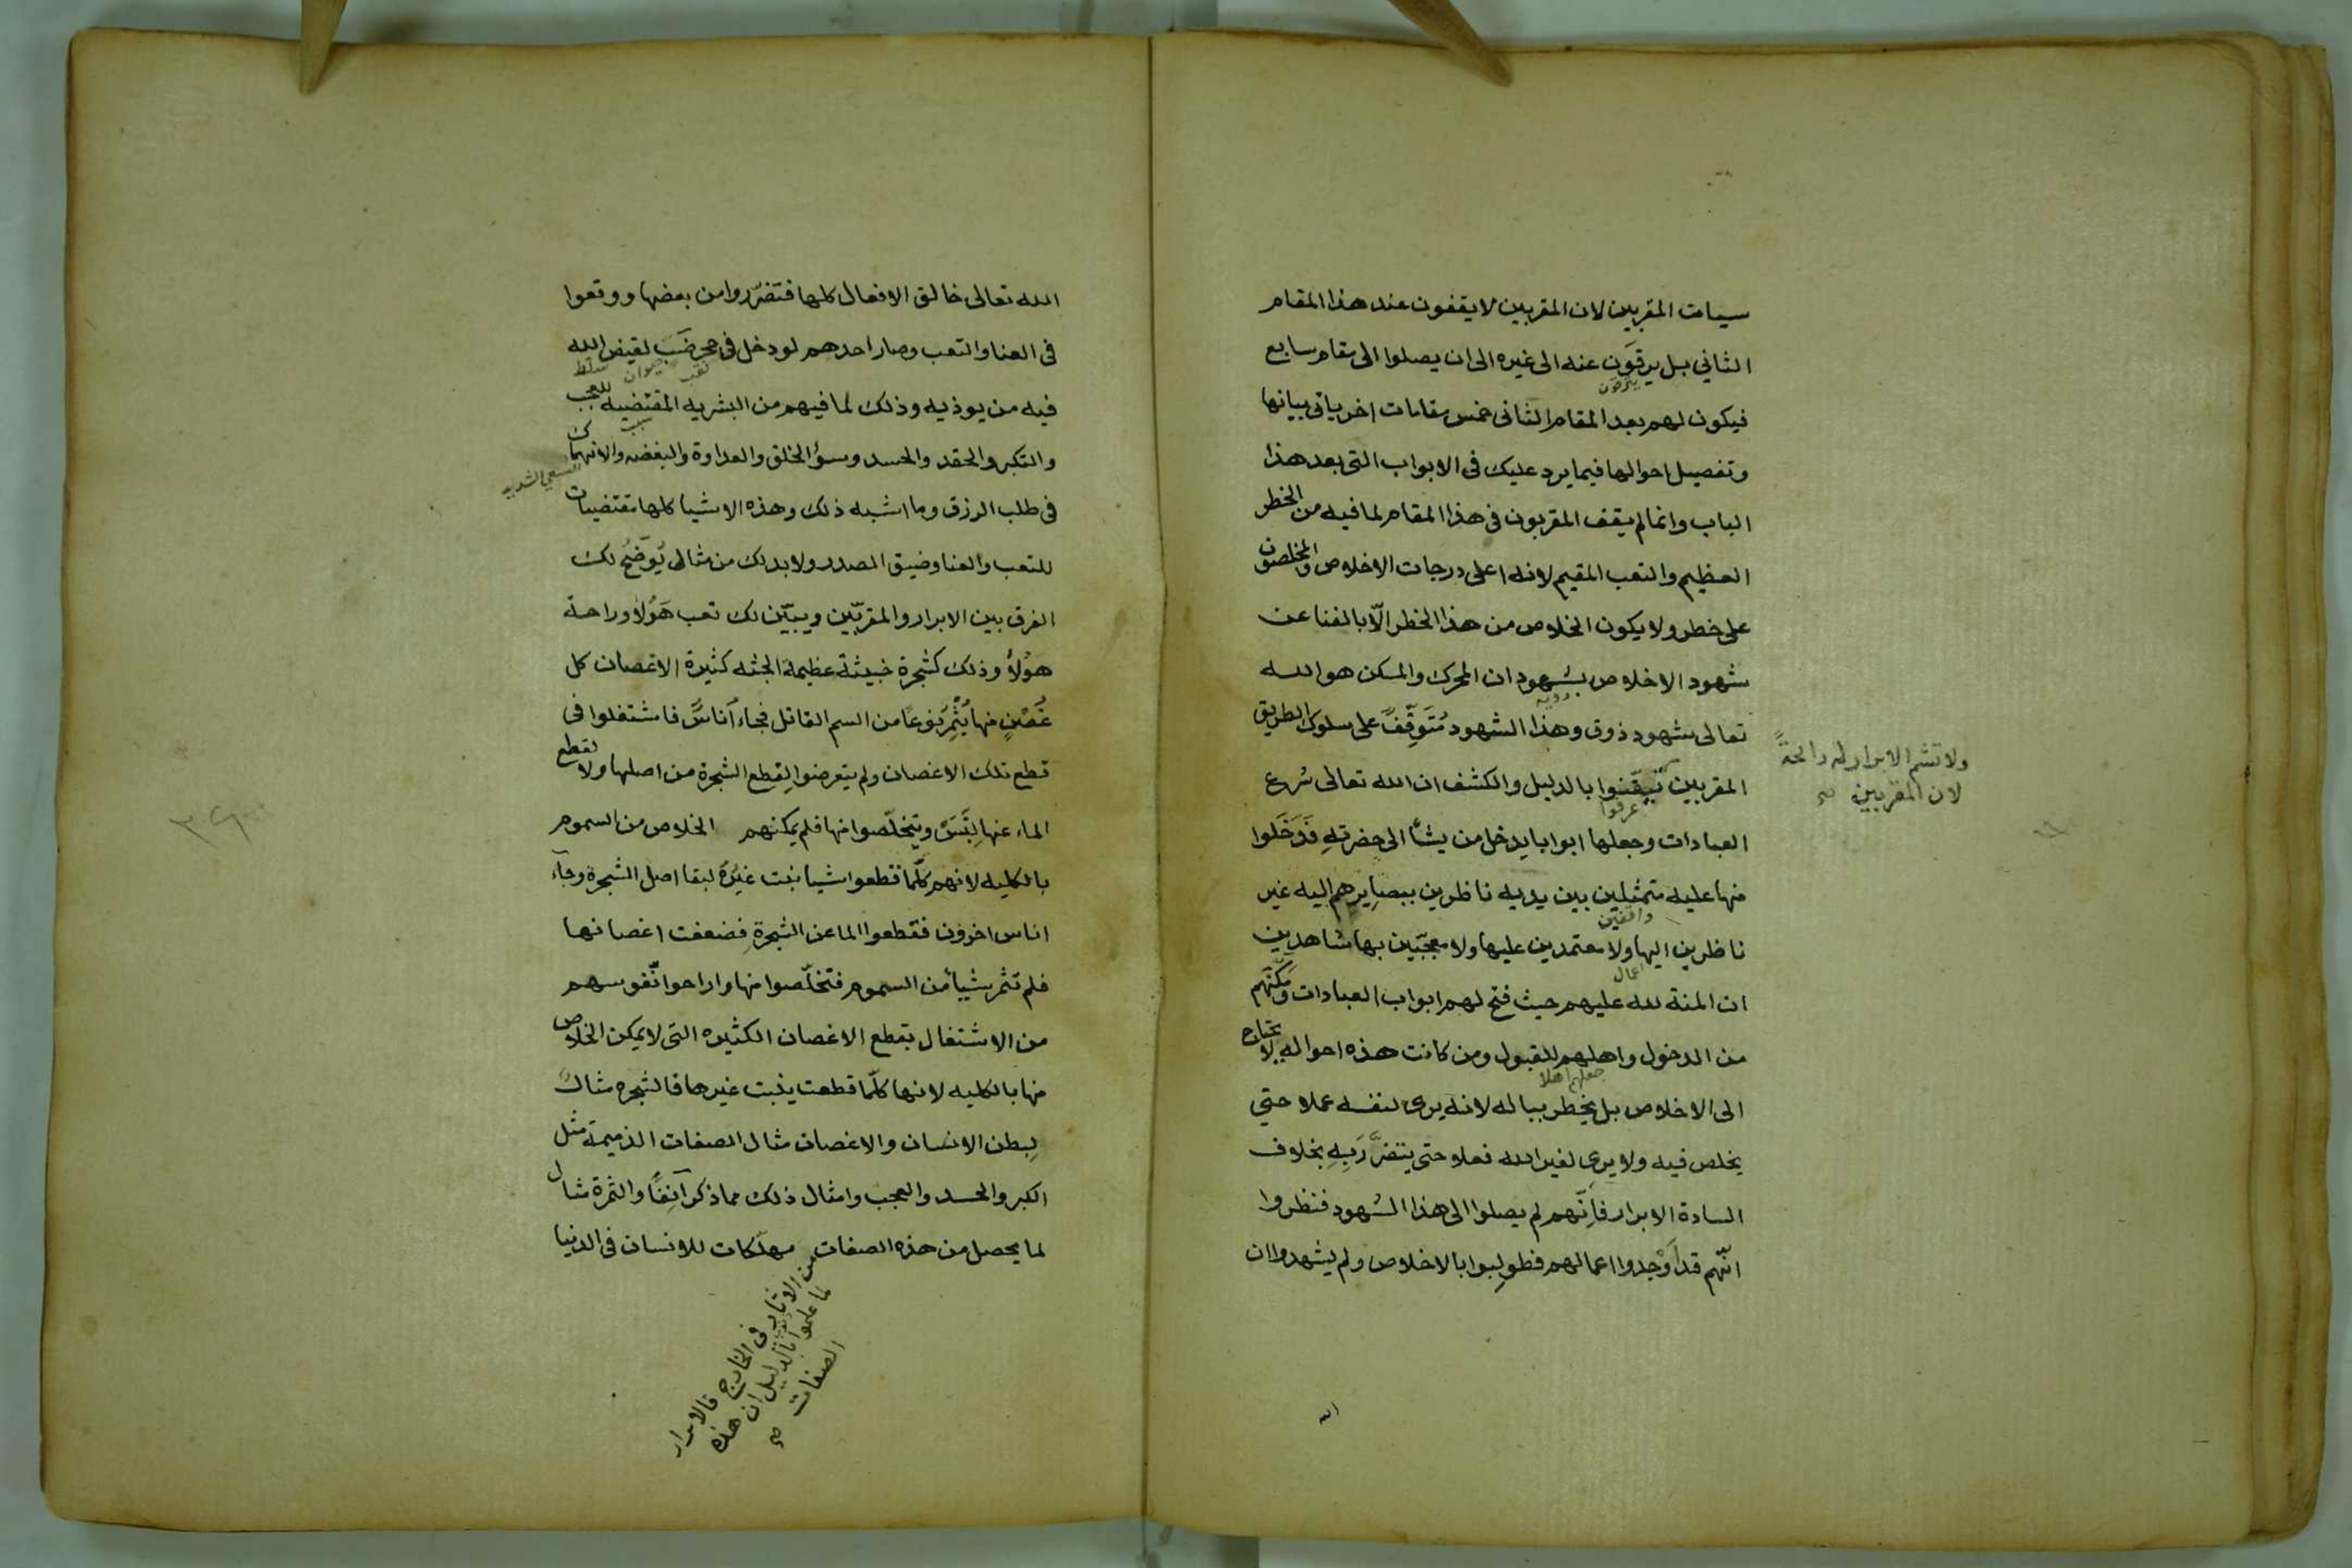 سيات المقربين لان المقربين لا يقفون عند هذا المقام
الثاني بل يرقون عنه الى غيره الى ان يصلوا الى مقام سابع
فيكون لهم بعد المقام الثاني خمس مقامات اخر ياتي بيانها
وتفصيل احوالها فيما يرد عليك في الابواب التي بعد هذا
الباب وانما لم يقف المقربون في هذا المقام لما فيه من الخطر
العظيم والتعب المقيم لانه اعلى درجات الاخلاص والمخلصون
على خطر ولا يكون الخلاص من هذا الخطر الّا بالفنا عن
شهود الاخلاص بشهود ان المحرك والمسكن هو الله
تعالى شهود ذوق وهذا الشهود مُتَوقِّفٌ على سلوك الطريق
المقربين تيقّنوا بالدليل والكشف ان الله تعالى شرع
عرفوا
العبادات وجعلها ابوابا يدخل من يشأ الى حضرتهِ فَدَخَلوا
منها عليه متمثلين بين يديه ناظرين ببصايرهم اليه غير
واقفين
ناظرين اليها ولا معتمدين عليها ولا معجبّين بها شاهدين
اعمال
ان المنة لله عليهم حيث فتح لهم ابواب العبادات ومَكَّنَهم
من الدخول واهلهم للقبول ومن كانت هذه احواله لا يحتاج
جعلهم اهلا
الى الاخلاص بل يخطر بباله لانه يرى لنفسه عملا حتي
يخلص فيه ولا يرى لغير الله فعلا حتى يتضرَّر بِهِ بخلاف
السادة الابرار فاِنّهم لم يصلوا الى هذا الشهود فنظروا
انّهم قد اَوْجدوا اعمالهم فطولِبوا بالاخلاص ولم يشهدوا ان
ولا تشم الابرار له رائحةً
لان المقربين صح
الله
الله تعالى خالق الافعال كلها فتضرّروا من بعضها ووقعوا
في العنا والتعب وصار احدهم لو دخل في حجر ضَبٍ لقيض الله
نقب حيوان سلط
فيه من يوذيه وذلك لما فيهم من البشريه المقتضيه للعجب
والتكبر والحقد والحسد وسؤ الخلق والعداوة والبغضه والانهماك
السعي الشديد
في طلب الرزق وما اشبه ذلك وهذه الاشيا كلها مقتضيات
للتعب والعنا وضيق الصدر ولا بد لك من مثال يُوضَّح لك
الفرق بين الابرار والمقربّين ويبيّن لك تعب هَؤلا وراحة
هؤلاُ وذلك كشجرة خبيثة عظيمة الجثه كثيرة الاغصان كل
غُصْنٍ منها يُثْمِر نوعًا من السم القاتل فجاء اُناسٌ فاشتغلوا في
قطع تلك الاغصان ولم يتعرضوا لِقطع الشجرة من اصلها ولا لقطع
الماء عنها لِتَبَسَ ويتخلّصوا منها فلم يمكنهم الخلاص من السموم
بالكليه لانهم كلّما قطعوا شيا نبت غيرُهُ لبقا اصل الشجرة وجآء
اناس اخرون فقطعوا الما عن الشجرةِ فضعفت اغصانها
فلم تثمر شيأ من السموم فتخلّصوا منها واراحوا انّفوسهم
من الاشتغال بقطع الاغصان الكثيره التي لا يمكن الخلاص
منها بالكليه لانها كلّما قطعت ينبت غيرها فالشجره مثالٌ
لِبطن الانسان والاغصان مثال الصفات الذميمة مثل
الكبر والحسد والعجب وامثال ذلك مما ذكر آنِفًا والثمرة مثال
لما يحصل من هذه الصفات مهلّكات للانسان في الدنيا
في الخارج فالابرار
لما علموا بالدليل ان هذه
الصفات صح